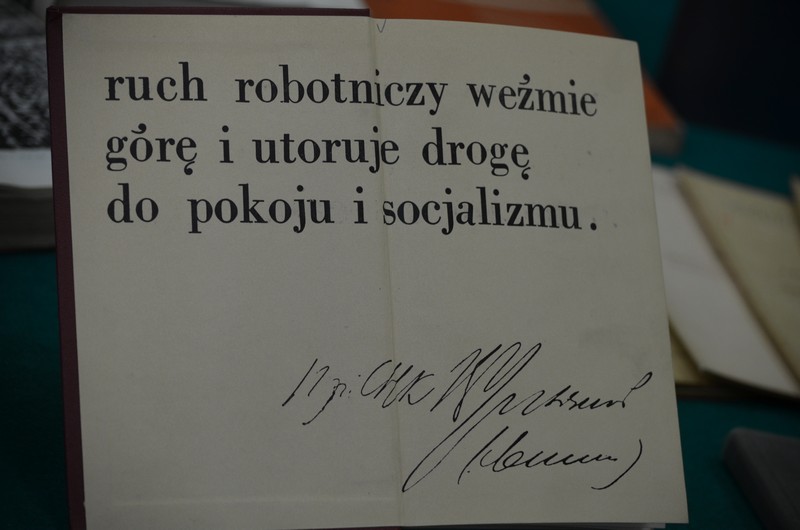 ruch robotniczy weźmie
górę i utoruje drogę
do pokoju i socjalizmu.